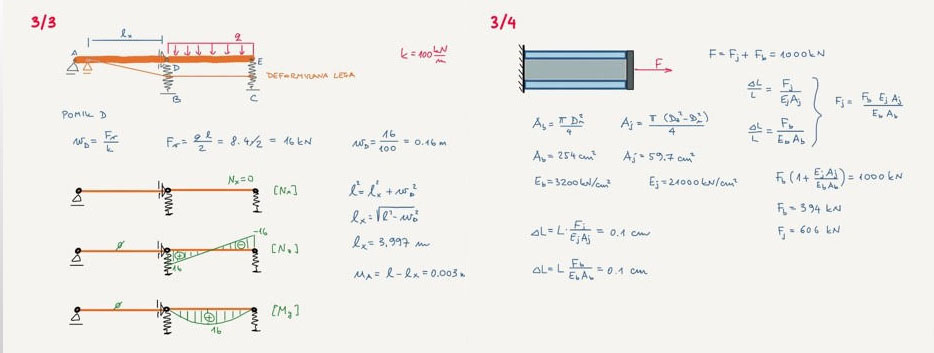 3/3
l_x
q
A
D
E
B
C
DEFORMIRANA LEGA
k = 100 kN/m
POMIK D
w_D = F_r/k
F_r = q l/2 = 8·4/2 = 16 kN
w_D = 16/100 = 0.16 m
N_x=0
[N_x]
l² = l_x² + w_D²
l_x = √(l² - w_D²)
l_x = 3,997 m
u_A = l - l_x = 0.003 m
-16
⊖
∅
⊕
16
∅
⊕
16
[M_y]
3/4
F
F = F_j + F_b = 1000 kN
ΔL/L = F_j/(E_j A_j)
ΔL/L = F_b/(E_b A_b)
F_j = F_b E_j A_j/(E_b A_b)
A_b = π D_n²/4
A_j = π (D_z² - D_n²)/4
A_b = 254 cm²
A_j = 59.7 cm²
E_b = 3200 kN/cm²
E_j = 21000 kN/cm²
F_b (1 + E_j A_j/(E_b A_b)) = 1000 kN
F_b = 394 kN
F_j = 606 kN
ΔL = L · F_j/(E_j A_j) = 0.1 cm
ΔL = L F_b/(E_b A_b) = 0.1 cm